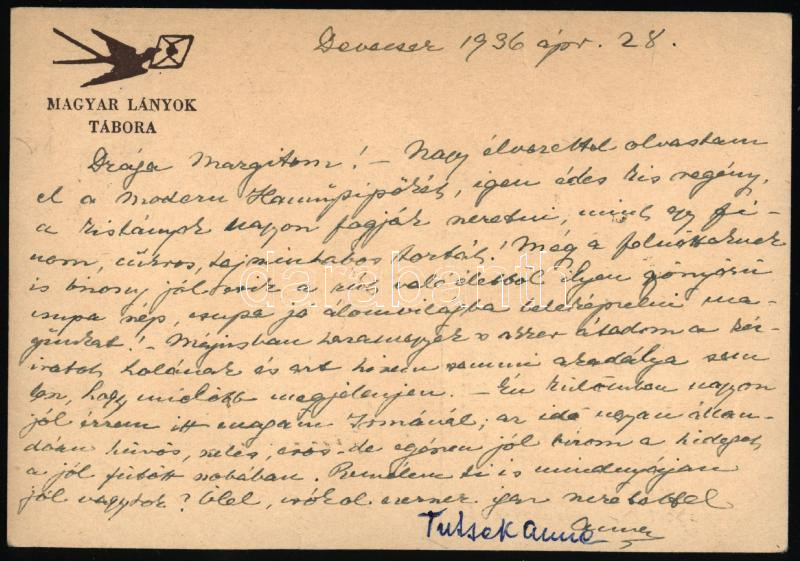 MAGYAR LÁNYOK
TÁBORA
Devecser 1936 ápr. 28.
Drága Margitom! – Nagy élvezettel olvastam
el a Modern Hamupipőkét, igen édes kis regény,
a kislányok nagyon fogják szeretni, mint egy fi-
nom, cukros, tejszinhabos tortát! Még a felnőtteknek
is bizony jól esik a való életből ilyen gönyörü
csupa szép, csupa jó álomvilágba beleképzelni ma-
gunkat! – Májusban hazamegyek s akkor átadom a kéz-
iratot és azt hiszem semmi akadálya sem
lesz, hogy mielőbb megjelenjen. – Én különben nagyon
jól érzem itt magam Irmával; az idő ugyan állan-
dóan hűvös, szeles, esős – de egészen jól birom a hideget
a jól fűtött szobában. Remélem ti is mindnyájan
jól vagytok? Ölel, csókol ezerszer igaz szeretettel
Anna
Tutsek Anna
darabanth